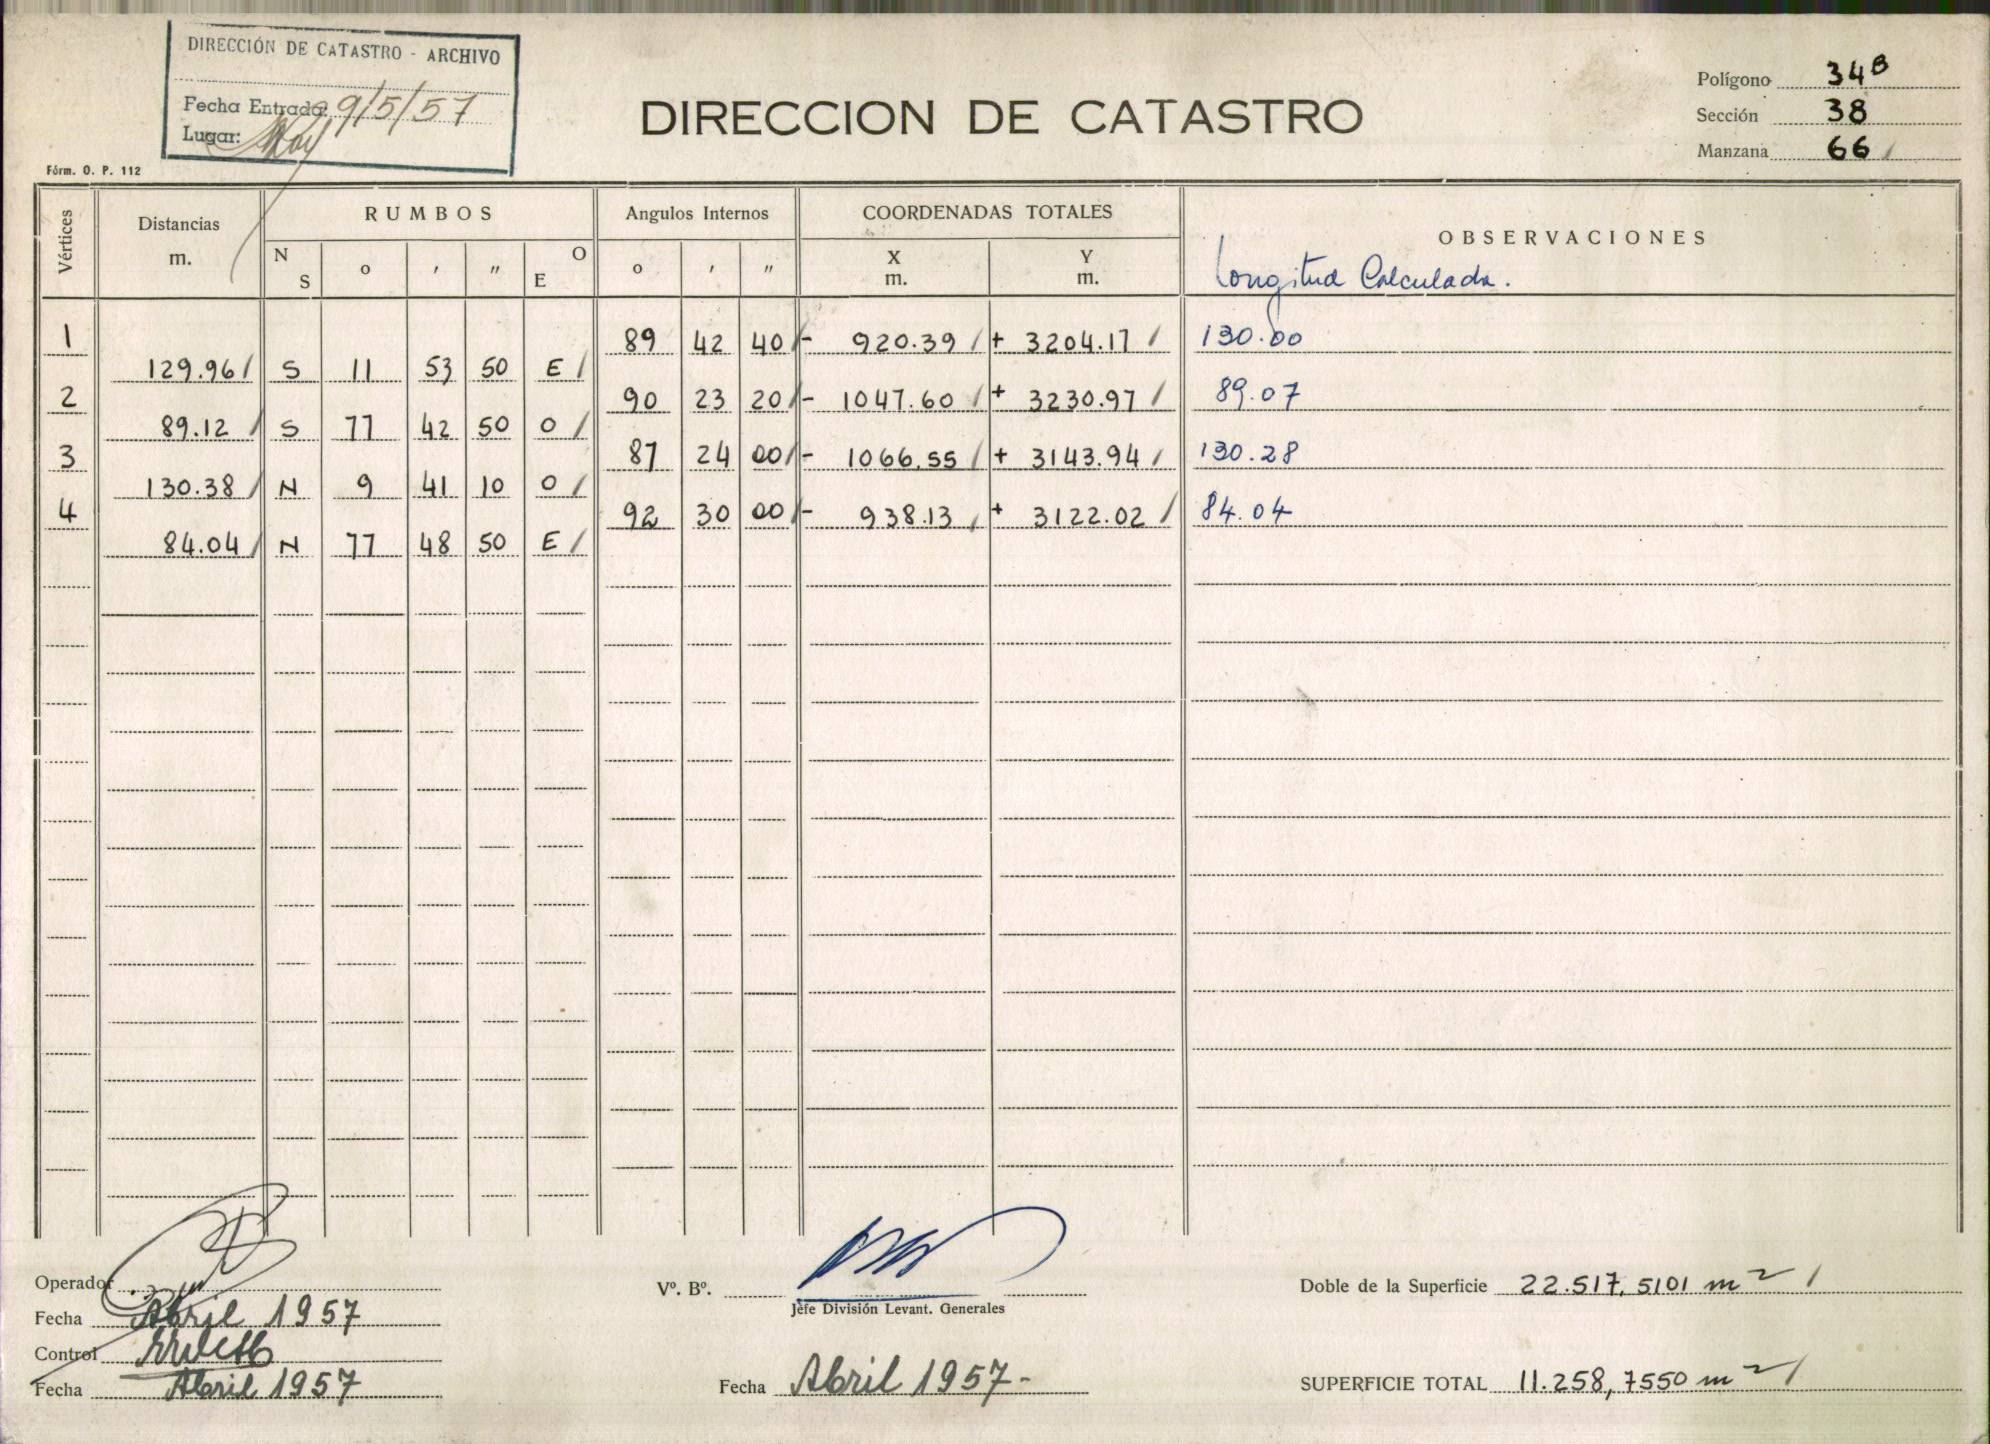 DIRECCIÓN DE CATASTRO - ARCHIVO
Fecha Entrada: 9/5/57
Lugar:
DIRECCION DE CATASTRO
Polígono 34B
Sección 38
Manzana 66
Fórm. O. P. 112
Vértices Distancias m. RUMBOS Angulos Internos COORDENADAS TOTALES OBSERVACIONES
N S o ′ ″ O E o ′ ″ X m. Y m. Longitud Calculada.
1 89 42 40 - 920.39 + 3204.17 130.00
129.96 S 11 53 50 E
2 90 23 20 - 1047.60 + 3230.97 89.07
89.12 S 77 42 50 O
3 87 24 00 - 1066.55 + 3143.94 130.28
130.38 N 9 41 10 O
4 92 30 00 - 938.13 + 3122.02 84.04
84.04 N 77 48 50 E
Operador
Fecha Abril 1957
Control
Fecha Abril 1957
Vº. Bº.
Jefe División Levant. Generales
Fecha Abril 1957-
Doble de la Superficie 22.517,5101 m2
SUPERFICIE TOTAL 11.258,7550 m2